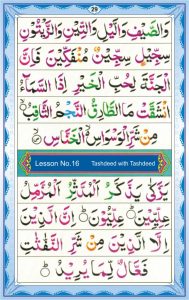 29
وَالصَّيْفِ وَالَّيْلِ وَالتِّيْنِ وَالزَّيْتُوْنِ
سِجِّيْلٍ سِجِّيْنٌ مُنْفَكِّيْنَ فَاِنَّ
الْجَنَّةَ لِحُبِّ الْخَيْرِ اِذَا السَّمَآءُ
انْشَقَّتْ مَا الطَّارِقُ النَّجْمُ الثَّاقِبُ
مِنْ شَرِّ الْوَسْوَاسِ الْخَنَّاسِ
Lesson No.16 Tashdeed with Tashdeed
يَزَّكّٰى يَذَّكَّرُ الْمُدَّثِّرُ الْمُزَّمِّلُ
عِلِّيِّيْنَ عِلِّيُّوْنَ اِنَّ الَّذِيْنَ
اِلَّا الَّذِيْنَ مِنْ شَرِّ النَّفّٰثٰتِ
فَعَّالٌ لِّمَا يُرِيْدُ